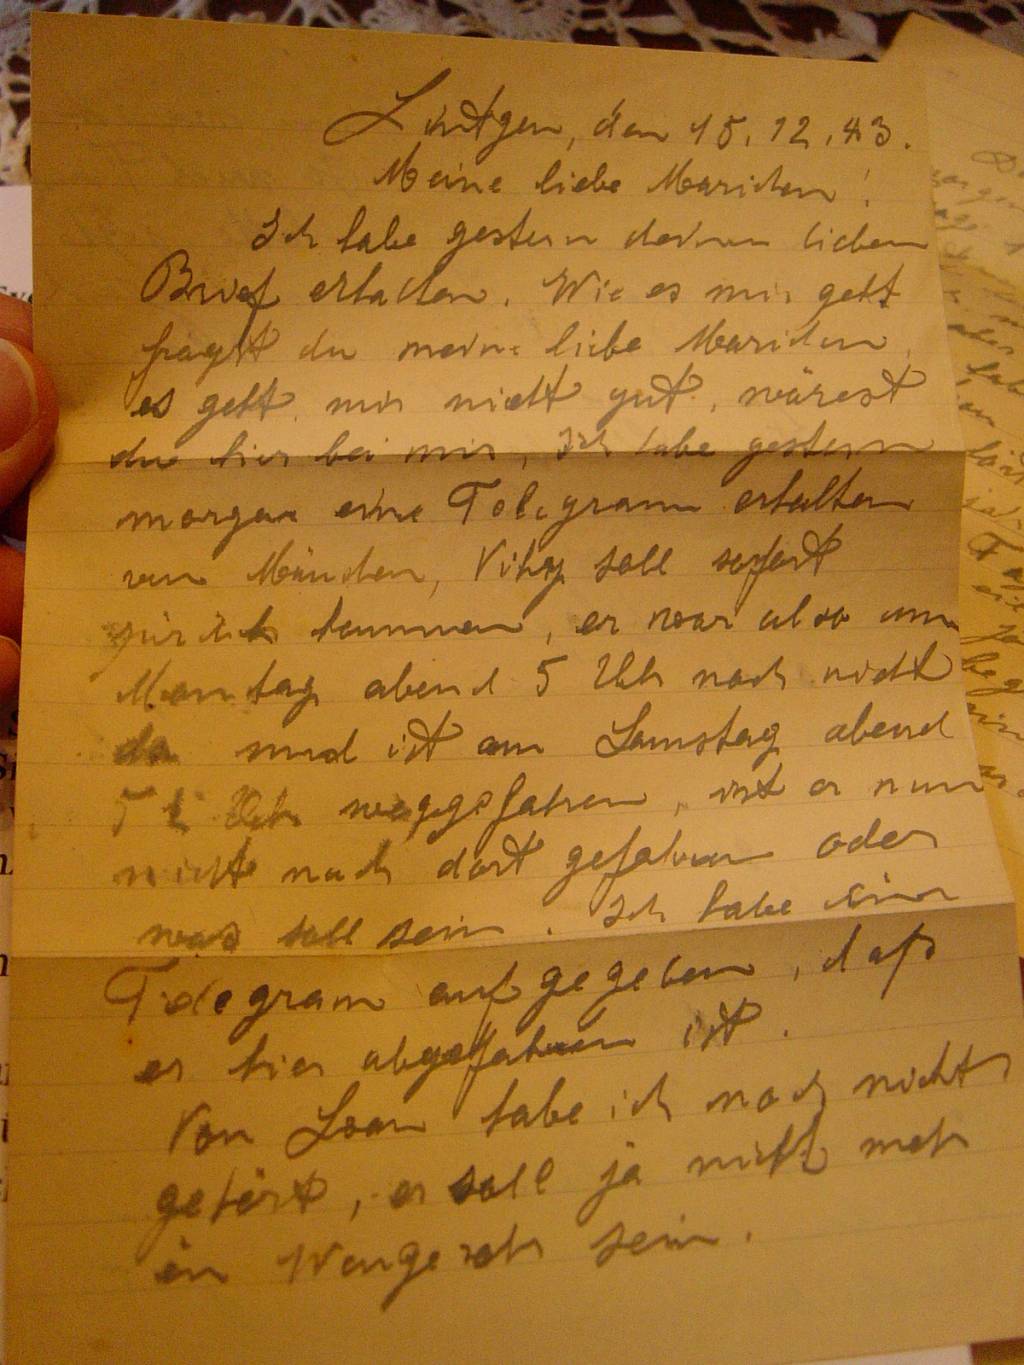 Lintgen, den 15.12.43.
Meine liebe Mariechen!
Ich habe gestern deinen lieben
Brief erhalten. Wie es mir geht
fragst du meine liebe Mariechen,
es geht mir nicht gut, wärest
du hier bei mir, Ich habe gestern
morgen eine Telegram erhalten
von München, soll sofort
zurück kommen, er war also am
Montag abend 5 Uhr noch nicht
da und ist am Samstag abend
5 Uhr weggefahren, ist er nun
nicht nach dort gefahren oder
was soll sein. Ich habe ein
Telegram aufgegeben, daß
er hier abgefahren ist.
Von habe ich noch nicht
gehört, er soll ja nicht meh
in sein.